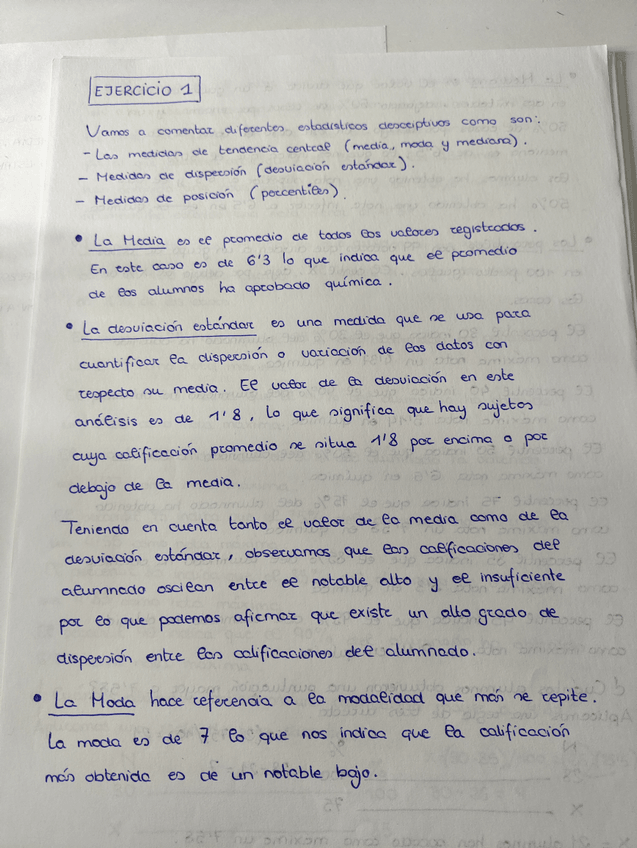 EJERCICIO 1
Vamos a comentar diferentes estadísticos descriptivos como son:
- Las medidas de tendencia central (media, moda y mediana).
- Medidas de dispersión (desviación estándar).
- Medidas de posición (porcentiles).
• La Media es el promedio de todos los valores registrados.
En este caso es de 6'3 lo que indica que el promedio
de los alumnos ha aprobado química.
• La desviación estándar es una medida que se usa para
cuantificar la dispersión o variación de los datos con
respecto su media. El valor de la desviación en este
análisis es de 1'8, lo que significa que hay sujetos
cuya calificación promedio se situa 1'8 por encima o por
debajo de la media.
Teniendo en cuenta tanto el valor de la media como de la
desviación estándar, observamos que las calificaciones del
alumnado oscilan entre el notable alto y el insuficiente
por lo que podemos afirmar que existe un alto grado de
dispersión entre las calificaciones del alumnado.
• La Moda hace referencia a la modalidad que más se repite.
La moda es de 7 lo que nos indica que la calificación
más obtenida es de un notable bajo.